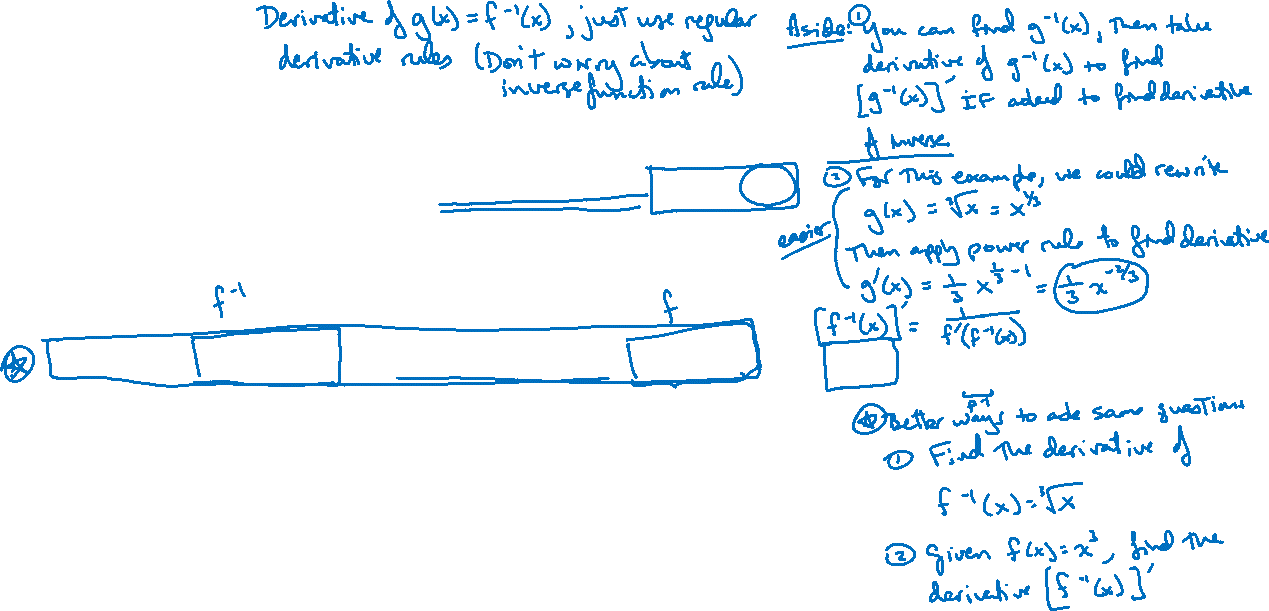 Derivative of g(x) = f⁻¹(x), just use regular
derivative rules (Don't worry about
inverse function rule)
Aside: ① You can find g⁻¹(x), then take
derivative of g⁻¹(x) to find
[g⁻¹(x)]′ IF asked to find derivative
of inverse
② For this example, we could rewrite
g(x) = ∛x = x^(1/3)
easier
Then apply power rule to find derivative
g′(x) = 1/3 x^(1/3 - 1) = 1/3 x^(-2/3)
f⁻¹
f
[f⁻¹(x)]′ = 1/f′(f⁻¹(x))
Better ways to ask same questions
① Find the derivative of
f⁻¹(x) = ∛x
② Given f(x) = x³, find the
derivative [f⁻¹(x)]′